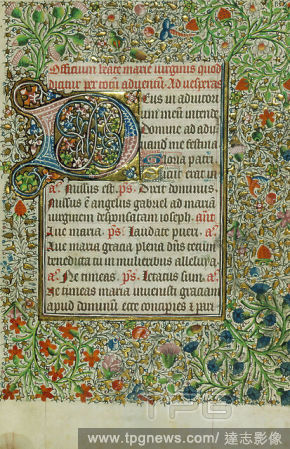 Officium beate marie virginis quod
dicitur per totum adventum. Ad vesperas
Deus in adiutori
um meum intende
Domine ad adiu
vandum me festina
Gloria patri
sicut erat in
a. Missus est. ps. Dixit dominus.
Missus est angelus gabriel ad mariam
virginem desponsatam ioseph. ant.
Ave maria. ps. Laudate pueri. a.
Ave maria gracia plena dominus tecum
benedicta tu in mulieribus alleluya.
a. Ne timeas. ps. Letatus sum. a.
Ne timeas maria invenisti graciam
apud dominum ecce concipies et pari
TPG
www.tpgnews.com/ 達志影像